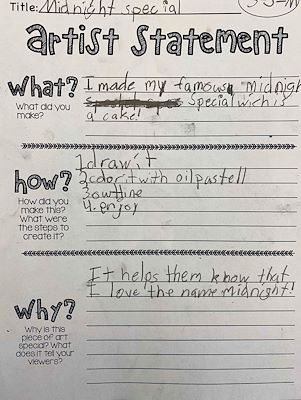 Title: Midnight special
Artist Statement
What?
What did you
make?
I made my famous midnigh
special wich is
a cake!
how?
How did you
make this?
What were
the steps to
create it?
1 draw it
2 color it with oil pastell
3 outline
4. enjoy
Why?
Why is this
piece of art
special? What
does it tell your
viewers?
It helps them know that
I love the name midnight!